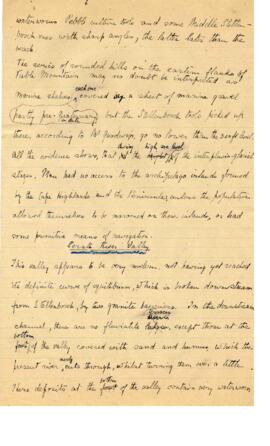 waterworn Pebble culture tools and some Middle Stellen-
bosch ones with sharp angles, the latter later than the
wash.
The series of rounded hills on the eastern flanks of
Table Mountain may no doubt be interpreted as
moraine covered by a sheet of marine gravel
partly pre- but the Stellenbosch tools picked up
there, according to Mr Goodwin, go no lower than the
all the evidence above, that the of the interpluvio-glacial
stages. Men had no access to the archipelago islands formed
by the Cape Highlands and the Peninsula, unless the population
allowed themselves to be marooned on these islands, or had
some primitive means of navigation.
Eerste River Valley
This valley appears to be very modern, not having yet reached
its definite curve of equilibrium, which is broken down-stream
from Stellenbosch, by two granite . In the downstream
channel, there are no fluviatile , except those at the
bottom
of the valley covered with sand and humus, which the
present river cuts through, whilst turning them over a little.
These deposits at the bottom of the valley contain very waterworn